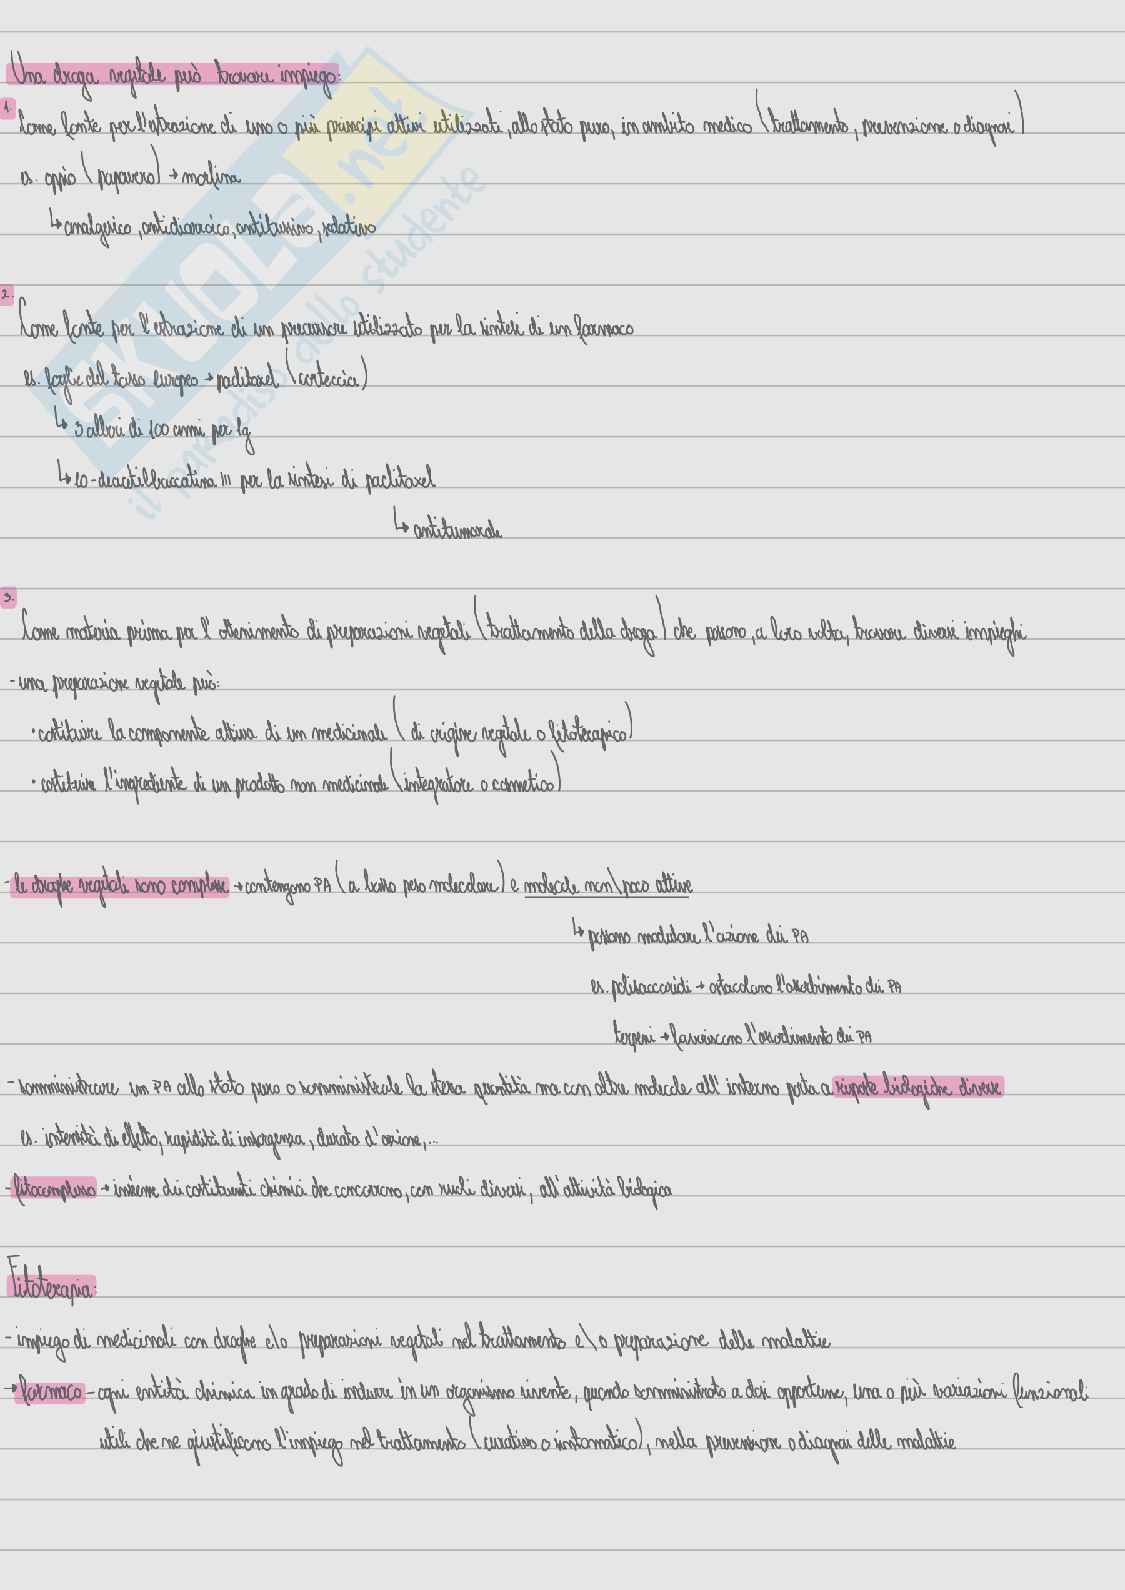 Una droga vegetale può trovare impiego:
1.
Come fonte per l'estrazione di uno o più principi attivi utilizzati, allo stato puro, in ambito medico (trattamento, prevenzione o diagnosi)
es. oppio (papavero) → morfina
↳ analgesico, antidiarroico, antitussivo, sedativo
2.
Come fonte per l'estrazione di un precursore utilizzato per la sintesi di un farmaco
es. foglie del tasso europeo → paclitaxel (corteccia)
↳ 3 alberi di 100 anni per 1g
↳ 10-deacetilbaccatina III per la sintesi di paclitaxel
↳ antitumorale
3.
Come materia prima per l'ottenimento di preparazioni vegetali (trattamento della droga) che possono, a loro volta, trovare diversi impieghi
- una preparazione vegetale può:
• costituire la componente attiva di un medicinale (di origine vegetale o fitoterapico)
• costituire l'ingrediente di un prodotto non medicinale (integratore o cosmetico)
- le droghe vegetali sono complesse → contengono PA (a basso peso molecolare) e molecole non\poco attive
↳ possono modulare l'azione dei PA
es. polisaccaridi → ostacolano l'assorbimento dei PA
terpeni → favoriscono l'assorbimento dei PA
- somministrare un PA allo stato puro o somministrale la stessa quantità ma con altre molecole all'interno porta a risposte biologiche diverse
es. intensità di effetto, rapidità di insorgenza, durata d'azione,...
- fitocomplesso → insieme dei costituenti chimici che concorrono, con ruoli diversi, all'attività biologica
Fitoterapia:
- impiego di medicinali con droghe e\o preparazioni vegetali nel trattamento e\o preparazione delle malattie
→ farmaco - ogni entità chimica in grado di indurre in un organismo vivente, quando somministrato a dosi opportune, una o più variazioni funzionali
utili che ne giustificano l'impiego nel trattamento (curativo o sintomatico), nella prevenzione o diagnosi delle malattie
SKUOLA.net
il paradiso dello studente